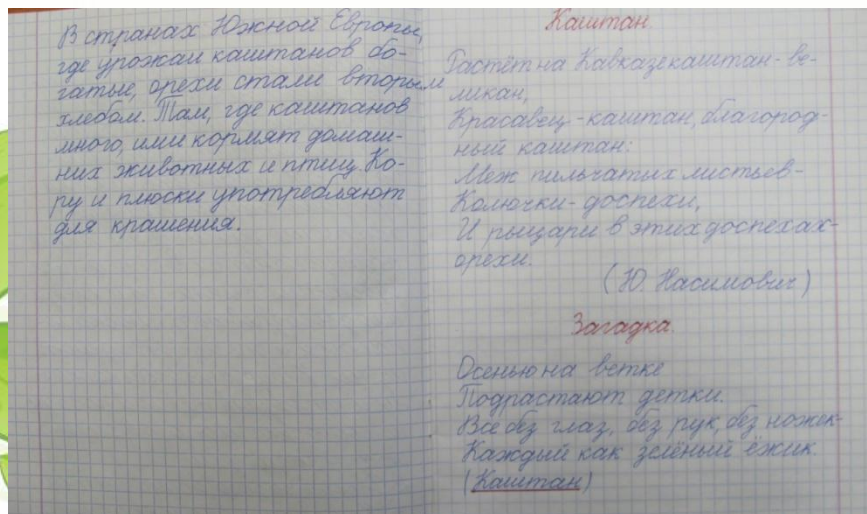 В странах Южной Европы,
где урожаи каштанов бо-
гатые, орехи стали вторым
хлебом. Там, где каштанов
много, ими кормят домаш-
них животных и птиц. Ко-
ру и плюски употребляют
для крашения.
Каштан.
Растёт на Кавказе каштан - ве-
ликан,
Красавец - каштан, благород-
ный каштан:
Меж пильчатых листьев-
Колючки - доспехи,
И рыцари в этих доспехах-
орехи.
(Ю. Насимович)
Загадка.
Осенью на ветке
Подрастают детки.
Все без глаз, без рук, без ножек-
Каждый как зелёный ёжик.
(Каштан)